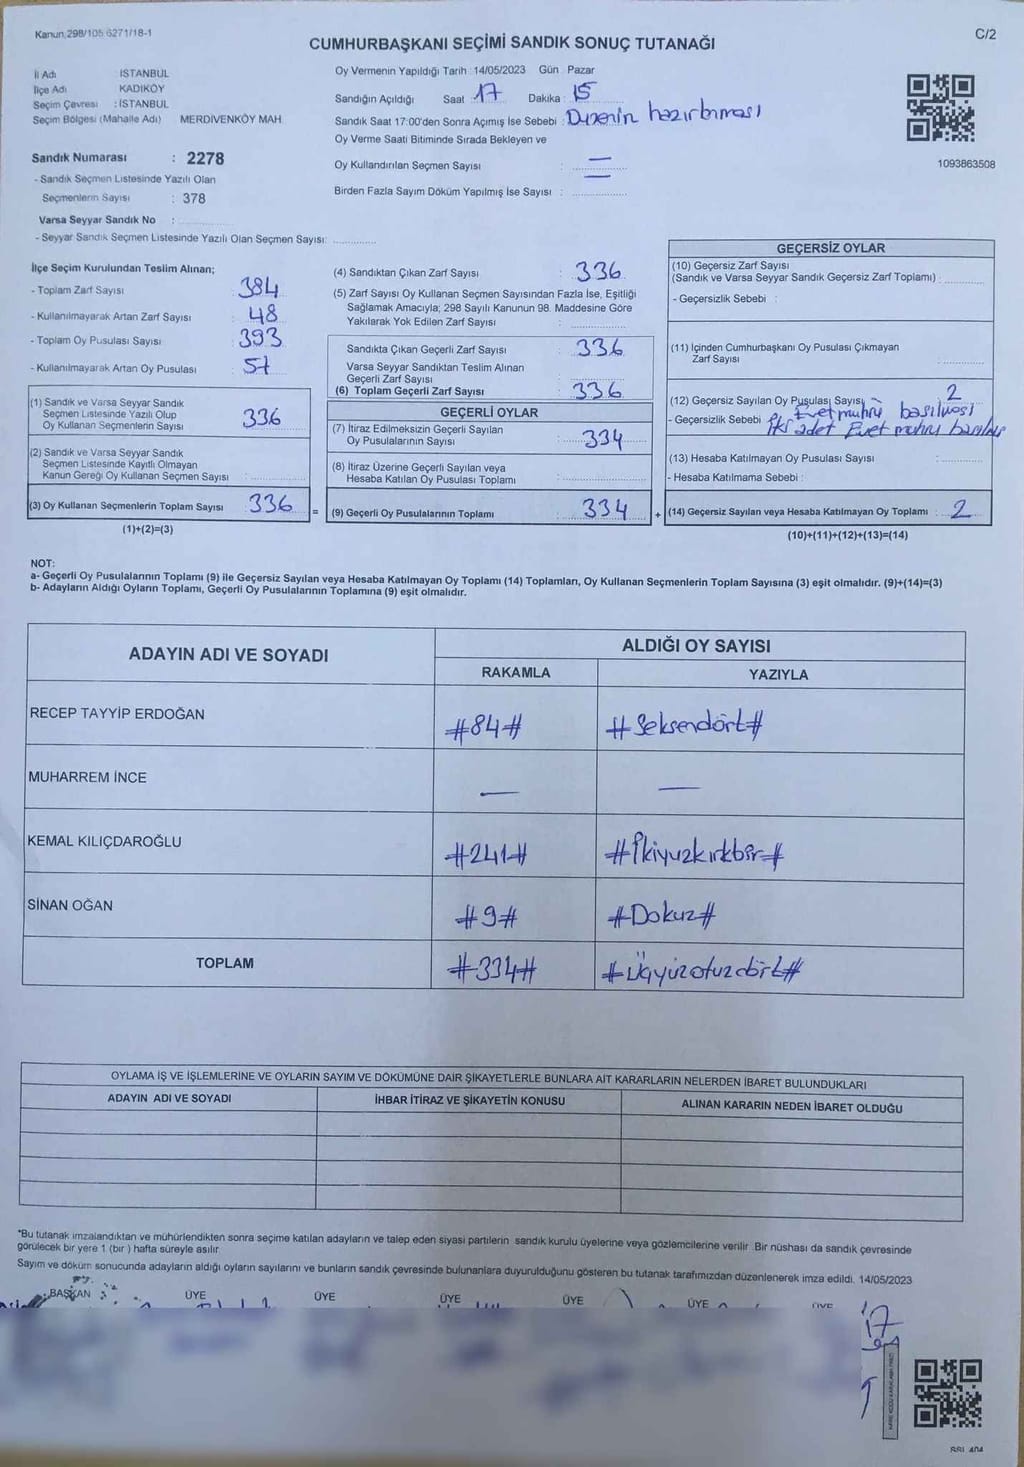 Kanun,298/105 6271/18-1
C/2
CUMHURBAŞKANI SEÇİMİ SANDIK SONUÇ TUTANAĞI
İl Adı İSTANBUL
İlçe Adı KADIKÖY
Seçim Çevresi : İSTANBUL
Seçim Bölgesi (Mahalle Adı) MERDİVENKÖY MAH.
Sandık Numarası : 2278
- Sandık Seçmen Listesinde Yazılı Olan
Seçmenlerin Sayısı : 378
Varsa Seyyar Sandık No :
- Seyyar Sandık Seçmen Listesinde Yazılı Olan Seçmen Sayısı:
Oy Vermenin Yapıldığı Tarih : 14/05/2023 Gün : Pazar
Sandığın Açıldığı Saat : 17 Dakika : 15
Sandık Saat 17:00'den Sonra Açımış İse Sebebi : Düzenin hazırlanması
Oy Verme Saati Bitiminde Sırada Bekleyen ve
Oy Kullandırılan Seçmen Sayısı : —
Birden Fazla Sayım Döküm Yapılmış İse Sayısı : —
1093863508
İlçe Seçim Kurulundan Teslim Alınan;
- Toplam Zarf Sayısı : 384
- Kullanılmayarak Artan Zarf Sayısı : 48
- Toplam Oy Pusulası Sayısı : 393
- Kullanılmayarak Artan Oy Pusulası : 57
(1) Sandık ve Varsa Seyyar Sandık
Seçmen Listesinde Yazılı Olup
Oy Kullanan Seçmenlerin Sayısı : 336
(2) Sandık ve Varsa Seyyar Sandık
Seçmen Listesinde Kayıtlı Olmayan
Kanun Gereği Oy Kullanan Seçmen Sayısı :
(3) Oy Kullanan Seçmenlerin Toplam Sayısı : 336
(1)+(2)=(3)
(4) Sandıktan Çıkan Zarf Sayısı : 336
(5) Zarf Sayısı Oy Kullanan Seçmen Sayısından Fazla İse, Eşitliği
Sağlamak Amacıyla; 298 Sayılı Kanunun 98. Maddesine Göre
Yakılarak Yok Edilen Zarf Sayısı :
Sandıkta Çıkan Geçerli Zarf Sayısı : 336
Varsa Seyyar Sandıktan Teslim Alınan
Geçerli Zarf Sayısı :
(6) Toplam Geçerli Zarf Sayısı : 336
GEÇERLİ OYLAR
(7) İtiraz Edilmeksizin Geçerli Sayılan
Oy Pusulalarının Sayısı : 334
(8) İtiraz Üzerine Geçerli Sayılan veya
Hesaba Katılan Oy Pusulası Toplamı :
= (9) Geçerli Oy Pusulalarının Toplamı : 334
GEÇERSİZ OYLAR
(10) Geçersiz Zarf Sayısı
(Sandık ve Varsa Seyyar Sandık Geçersiz Zarf Toplamı) :
- Geçersizlik Sebebi :
(11) İçinden Cumhurbaşkanı Oy Pusulası Çıkmayan
Zarf Sayısı :
(12) Geçersiz Sayılan Oy Pusulası Sayısı : 2
- Geçersizlik Sebebi : Evet mührü basılması
İki adet Evet mührü
(13) Hesaba Katılmayan Oy Pusulası Sayısı :
- Hesaba Katılmama Sebebi :
+ (14) Geçersiz Sayılan veya Hesaba Katılmayan Oy Toplamı : 2
(10)+(11)+(12)+(13)=(14)
NOT:
a- Geçerli Oy Pusulalarının Toplamı (9) ile Geçersiz Sayılan veya Hesaba Katılmayan Oy Toplamı (14) Toplamları, Oy Kullanan Seçmenlerin Toplam Sayısına (3) eşit olmalıdır. (9)+(14)=(3)
b- Adayların Aldığı Oyların Toplamı, Geçerli Oy Pusulalarının Toplamına (9) eşit olmalıdır.
ADAYIN ADI VE SOYADI
ALDIĞI OY SAYISI
RAKAMLA YAZIYLA
RECEP TAYYİP ERDOĞAN #84# #Seksendört#
MUHARREM İNCE — —
KEMAL KILIÇDAROĞLU #241# #İkiyüzkırkbir#
SİNAN OĞAN #9# #Dokuz#
TOPLAM #334# #Üçyüzotuzdört#
OYLAMA İŞ VE İŞLEMLERİNE VE OYLARIN SAYIM VE DÖKÜMÜNE DAİR ŞİKAYETLERLE BUNLARA AİT KARARLARIN NELERDEN İBARET BULUNDUKLARI
ADAYIN ADI VE SOYADI İHBAR İTİRAZ VE ŞİKAYETİN KONUSU ALINAN KARARIN NEDEN İBARET OLDUĞU
*Bu tutanak imzalandıktan ve mühürlendikten sonra seçime katılan adayların ve talep eden siyasi partilerin sandık kurulu üyelerine veya gözlemcilerine verilir. Bir nüshası da sandık çevresinde
görülecek bir yere 1 (bir ) hafta süreyle asılır.
Sayım ve döküm sonucunda adayların aldığı oyların sayılarını ve bunların sandık çevresinde bulunanlara duyurulduğunu gösteren bu tutanak tarafımızdan düzenlenerek imza edildi. 14/05/2023
BAŞKAN ÜYE ÜYE ÜYE ÜYE ÜYE ÜYE